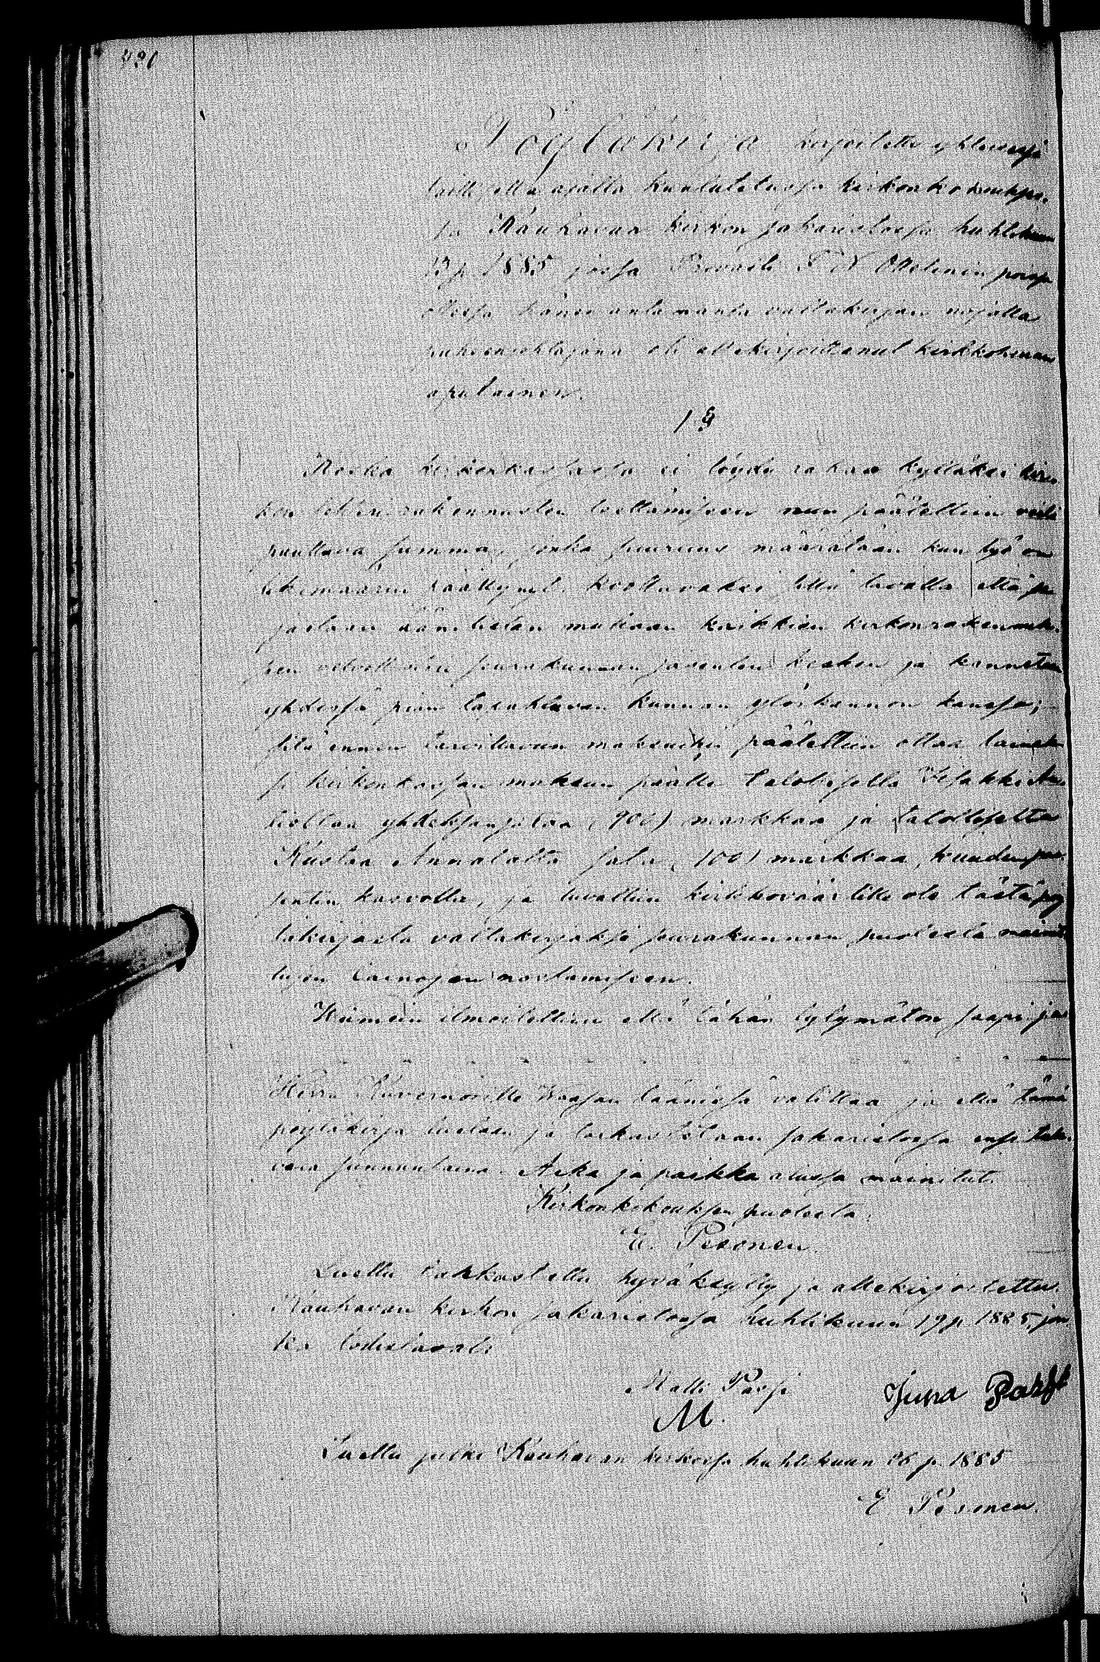 430
Pöytäkirja kirjoitettu yhteisesjä
laillisella ajalla kuulutetussa kirkonkokoukses-
sa Kauhavan kirkon sakaristossa huhtikuun
13 p. 1885 jossa Provasti F N Ottelinin poissa
ollessa hänen antamansa valtakirjan nojalla
puheenjohtajana oli allekirjoittanut kirkkoherran
apulainen.
1 §
Koska kirkonkassasta ei löydy rahaa kylläksi kir-
kon rakennusten teettämiseen niin päätettiin vielä
puuttuva summa, jonka suuruus määrätään kun työ on
likimäärin päättynyt koottavaksi sillä tavalla että se
jaetaan mukaan kaikkien kirkonrakennuk-
sen velvollisten seurakunnan jäsenten kesken ja kannetaan
yhdessä pian tapahtuvan kunnan yloskannon kanssa;
sitä ennen tarvittavain maksuihin päätettiin ottaa lainak-
si kirkonkassan maksun päälle talolliselta Iisakki
yhdeksänsataa (900) markkaa ja talolliselta
Kustaa Annalalta sata (100) markkaa, kuuden pro-
sentin kasvolla, ja luvattiin kirkkoväärtille ote tästä pöy-
täkirjasta valtakirjaksi seurakunnan puolesta mainit-
tujen lainojen nostamiseen.
Viimein ilmoitettiin että tähän tytymätön saapi
Herra Kuvernöörille Waasan läänissä valittaa ja että tämä
pöytäkirja luetaan ja tarkastetaan sakaristossa ensi tule-
vana sunnuntaina. Aika ja paikka alussa mainitut.
Kirkonkokouksen puolesta:
E. Pesonen.
Luettu tarkastettu hyväksytty ja allekirjoitettu
Kauhavan kirkon sakaristossa huhtikuun 19 p. 1885, jon-
ka todistavat:
Matti Passi Juha Passi
M.
Luettu julki Kauhavan kirkossa huhtikuun 26 p. 1885
E. Pesonen.